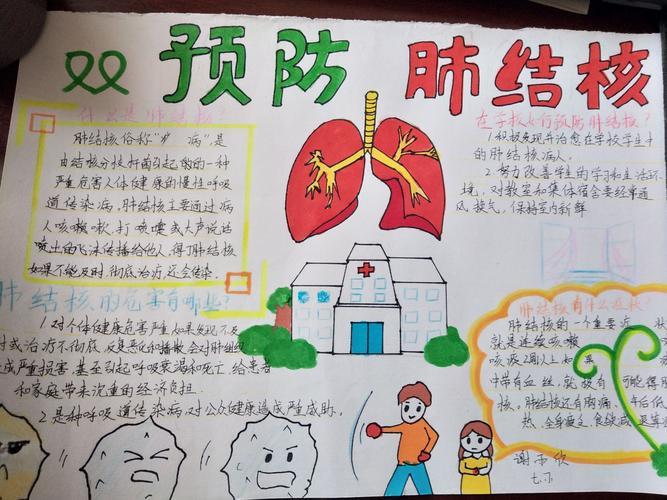 预防 肺结核
什么是肺结核?
肺结核俗称"疒 病",是
由结核分枝杆菌引起的的一种
严重危害人体健康的慢性呼吸
道传染病。肺结核主要通过病
人咳嗽、打喷嚏或大声说话
喷出的飞沫传播给他人,得了肺结核
如果不能及时,彻底治疗还会传染.
在学校如何预防肺结核?
1.积极发现并治愈在学校学生中
的肺结核病人。
2.努力改善学生的学习和生活环
境,对教室和集体宿舍要经常通
风、换气,保持室内新鲜
肺结核的危害有哪些?
1.对个体健康危害严重如果发现不及
时或治疗不彻底,反复恶化和播散,会对肺组织
造成严重损害,甚至引起呼吸衰竭和死亡,给患者
和家庭带来沉重的经济负担.
2.是种呼吸道传染病,对公众健康造成严重威胁.
肺结核有什么症状?
肺结核的一个重要症
状就是连续咳嗽
咳痰2周以上如 果
中带有血丝,就极有 可能得
核。肺结核还有胸痛、 午后低
热、全身疲乏、食欲减
谢
七